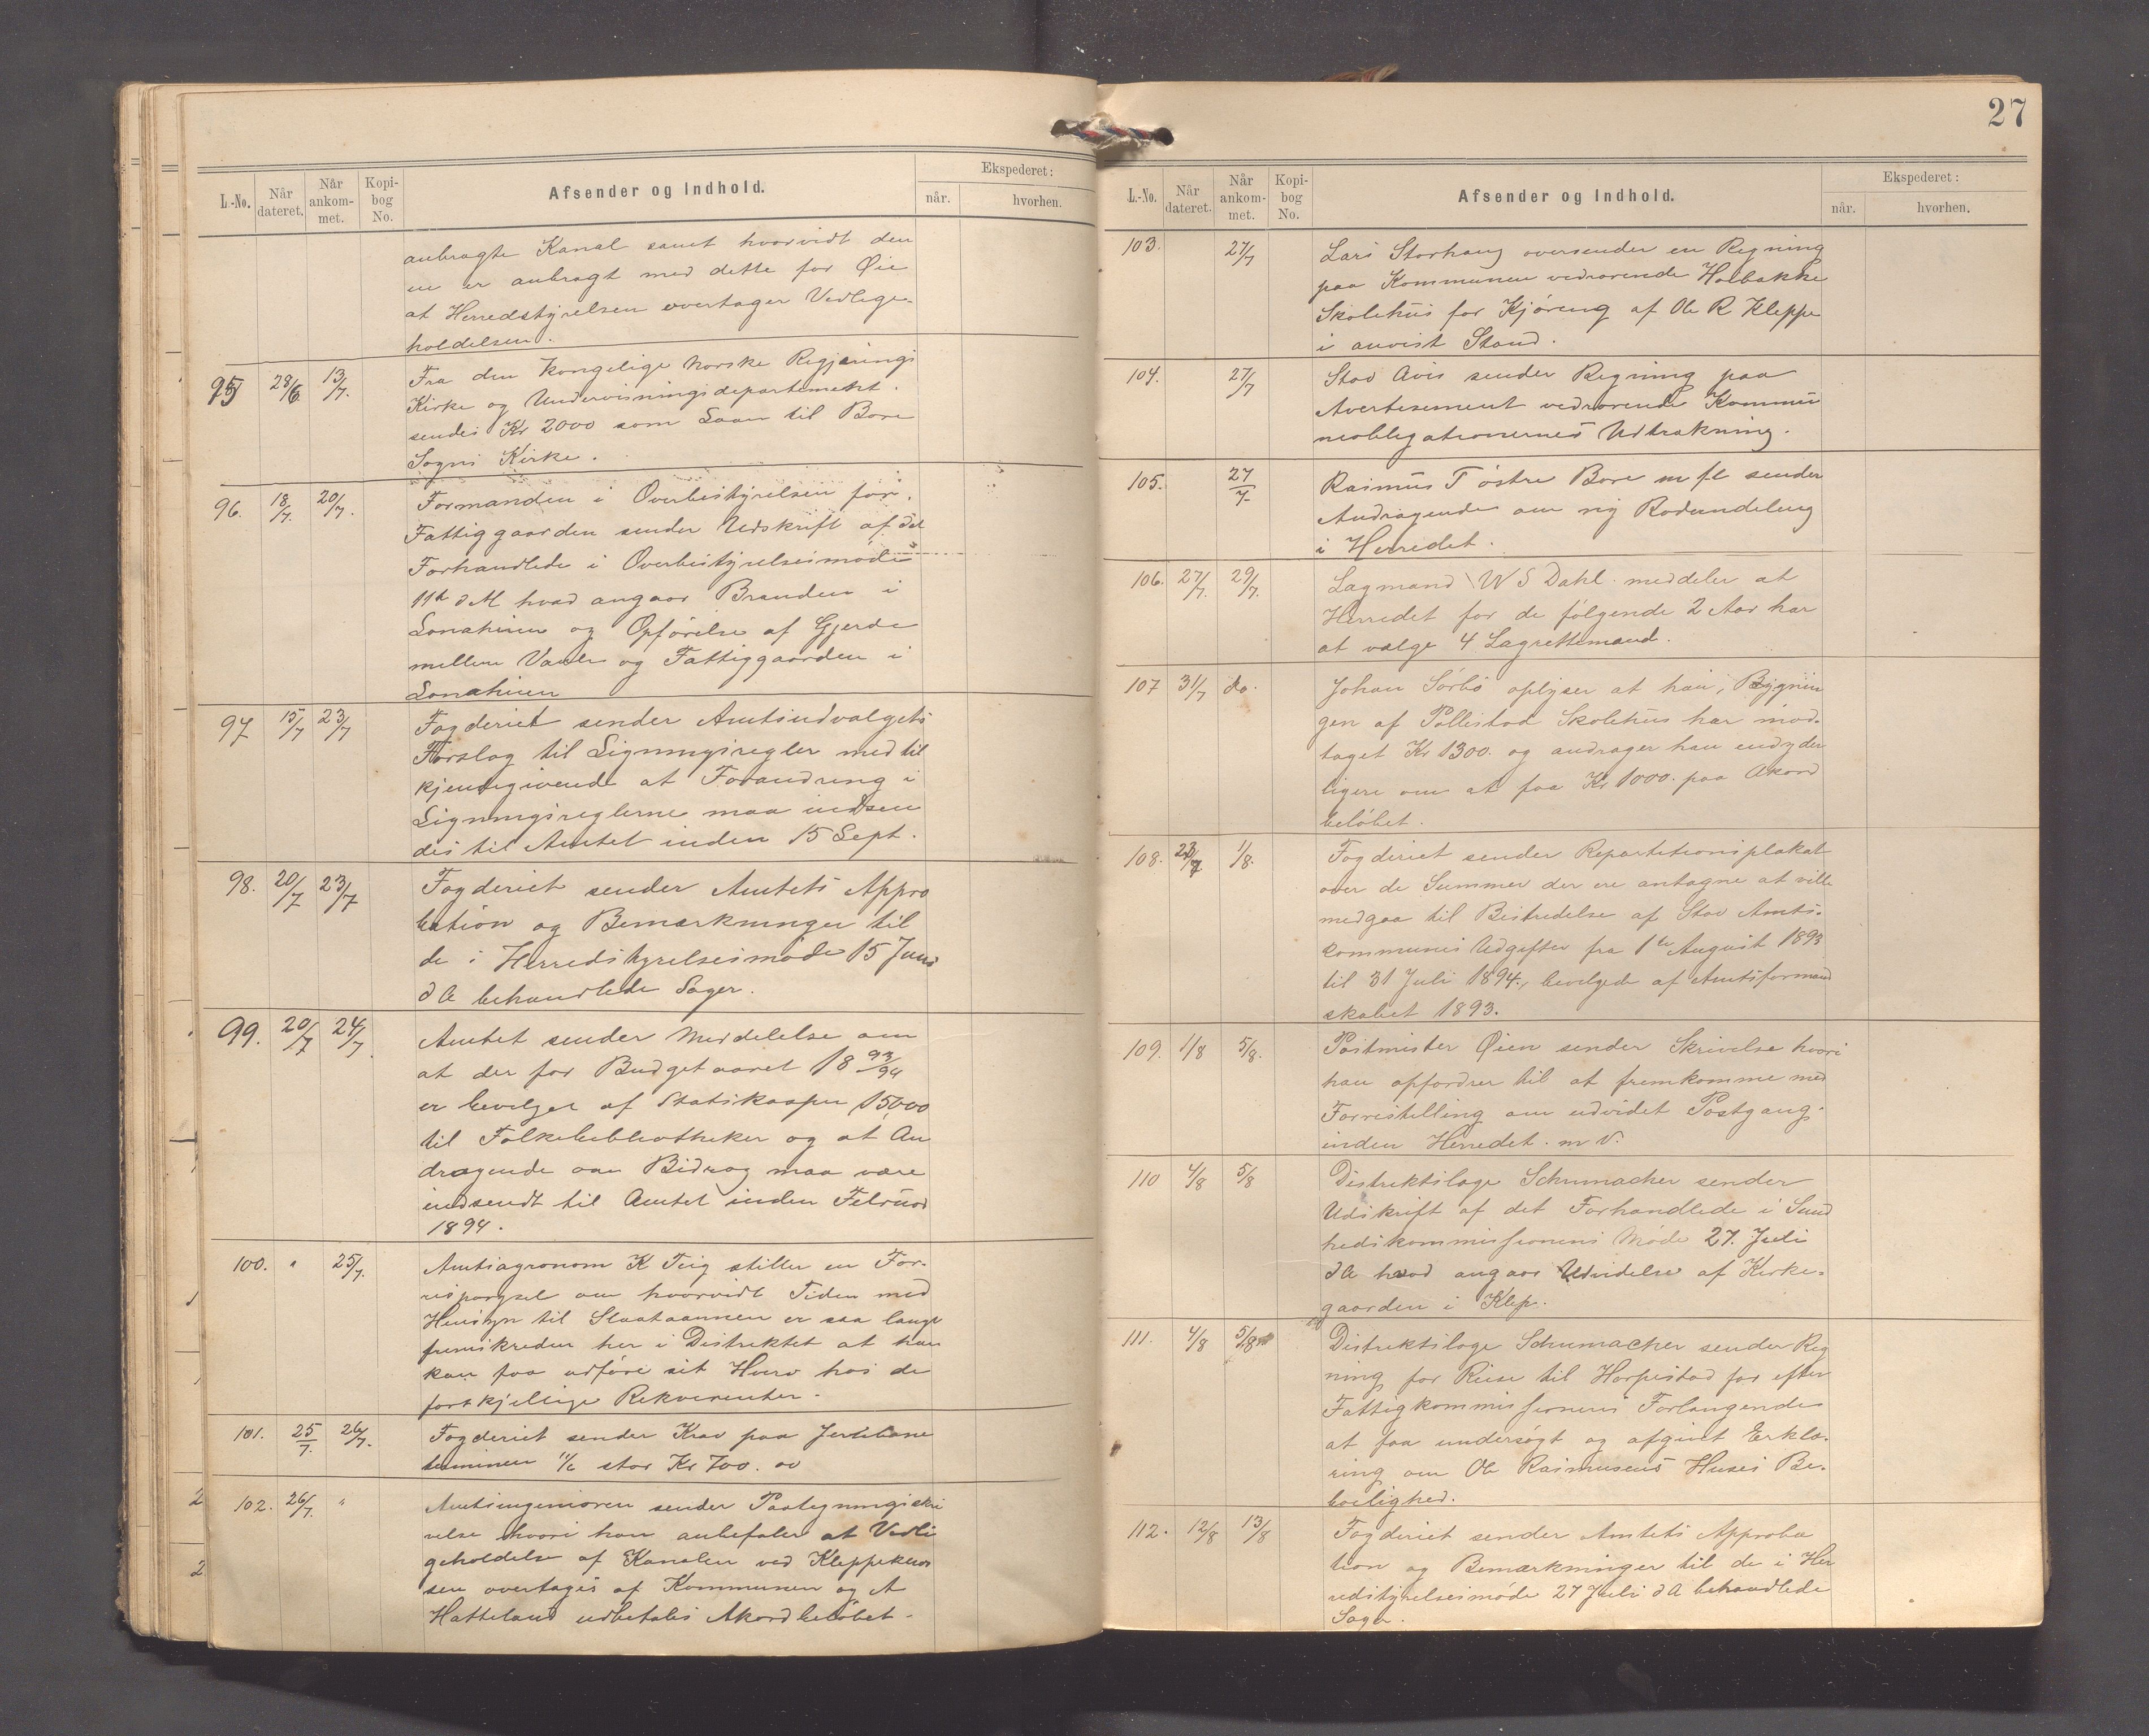 27
L.-No. Når dateret. Når ankommet. Kopibog No. Afsender og Indhold. Ekspederet: når. hvorhen.
anbragte Kanal samt hvorvidt den
en er anbragt med dette for Øie
at Herredstyrelsen overtager Vedlige-
holdelsen.
95 28/6 13/7. Fra den kongelige norske Regjerings
Kirke og Undervisningsdepartement.
sendes Kr 2000 som Laan til Bore
Sogns Kirke.
96. 18/7. 20/7. Formanden i Overbestyrelsen for
Fattiggaarden sender Udskrift af det
Forhandlede i Overbestyrelsesmøde
11te d M hvad angaar Branden i
og Opførelse af Gjerde
mellem og Fattiggaarden i
97 15/7 23/7 Fogderiet sender Amtsudvalgets
Forslag til Ligningsregler med til
kjendegivende at Forandring i
Ligningsreglerne maa indsen
des til Amtet inden 15 Sept.
98. 20/7 23/7 Fogderiet sender Amtets Appro
bation og Bemærkninger til
de i Herredstyrelsesmøde 15 Juni
d A behandlede Sager.
99. 20/7 24/7. Amtet sender Meddelelse om
at der for Budgetaaret 18 93/94
er bevilget af Statskassen 15000
til Folkebibliotheker og at An
dragende om Bidrag maa være
indsendt til Amtet inden Februar
1894.
100. " 25/7. Amtsagronom K Teig stiller en For-
espørgsel om hvorvidt Tiden med
Hensyn til Slaataannen er saa langt
fremskreden her i Distriktet at han
kan faa udføre sit Hverv hos de
forskjellige Rekvirenter.
101. 25/7. 26/7. Fogderiet sender Krav paa Jernbane
terminen 11/6 stor Kr 700. oo
102. 26/7. " Amtsingeniøren sender Paategningsskri
velse hvori han anbefaler at Vedli
geholdelse af Kanalen ved
sen overtages af Kommunen og A
Hatteland udbetales Akordbeløbet.
L.-No. Når dateret. Når ankommet. Kopibog No. Afsender og Indhold. Ekspederet: når. hvorhen.
103. 27/7 Lars Storhaug oversender en Regning
paa Kommunen vedrørende Holbakke
Skolehus for Kjøreng af Ole R Kleppe
i anvist Stand.
104. 27/7 Stav Avis sender Regning paa
Avertisement vedrørende Kommu
neobligationernes Udtrækning.
105. 27/7 Rasmus T østre Bore m fl sender
Andragende om ny Rodeinndeling
i Herredet.
106. 27/7. 29/7. Lagmand W S Dahl meddeler at
Herredet for de følgende 2 Aar har
at vælge 4 Lagrettemænd.
107 31/7 do. Johan Sørbø oplyser at han i Bygnin
gen af Pollestad Skolehus har mod-
taget Kr 1300. og andrager han endyder
ligere om at faa Kr 1000. paa Akord
beløbet.
108. 23/7 1/8. Fogderiet sender Repartitionsplakat
over de Summer der ere antagne at ville
medgaa til Bestridelse af Stav Amts-
kommunes Udgifter fra 1te August 1893
til 31 Juli 1894., bevilgede af Amtsformand
skabet 1893.
109. 1/8 5/8. Postmester Øien sender Skrivelse hvori
han opfordrer til at fremkomme med
Forestilling om udvidet Postgang
inden Herredet. m V.
110 4/8 5/8 Distriktslæge Schumacher sender
Udskrift af det Forhandlede i Sund
hedskommissionens Møde 27. Juli
dA hvad angaar Udvidelse af Kirke-
gaarden i Klep.
111. 4/8 5/8 Distriktslæge Schumacher sender Reg
ning for Reise til Horpestad for efter
Fattigkommissionens Forlangende
at faa undersøgt og afgivet Erklæ-
ring om Ole Rasmusens Huses Be-
boelighed.
112. 12/8 13/8 Fogderiet sender Amtets Approba
tion og Bemærkninger til de i Her
redstyrelsesmøde 27 Juli d A behandlede
Sager.